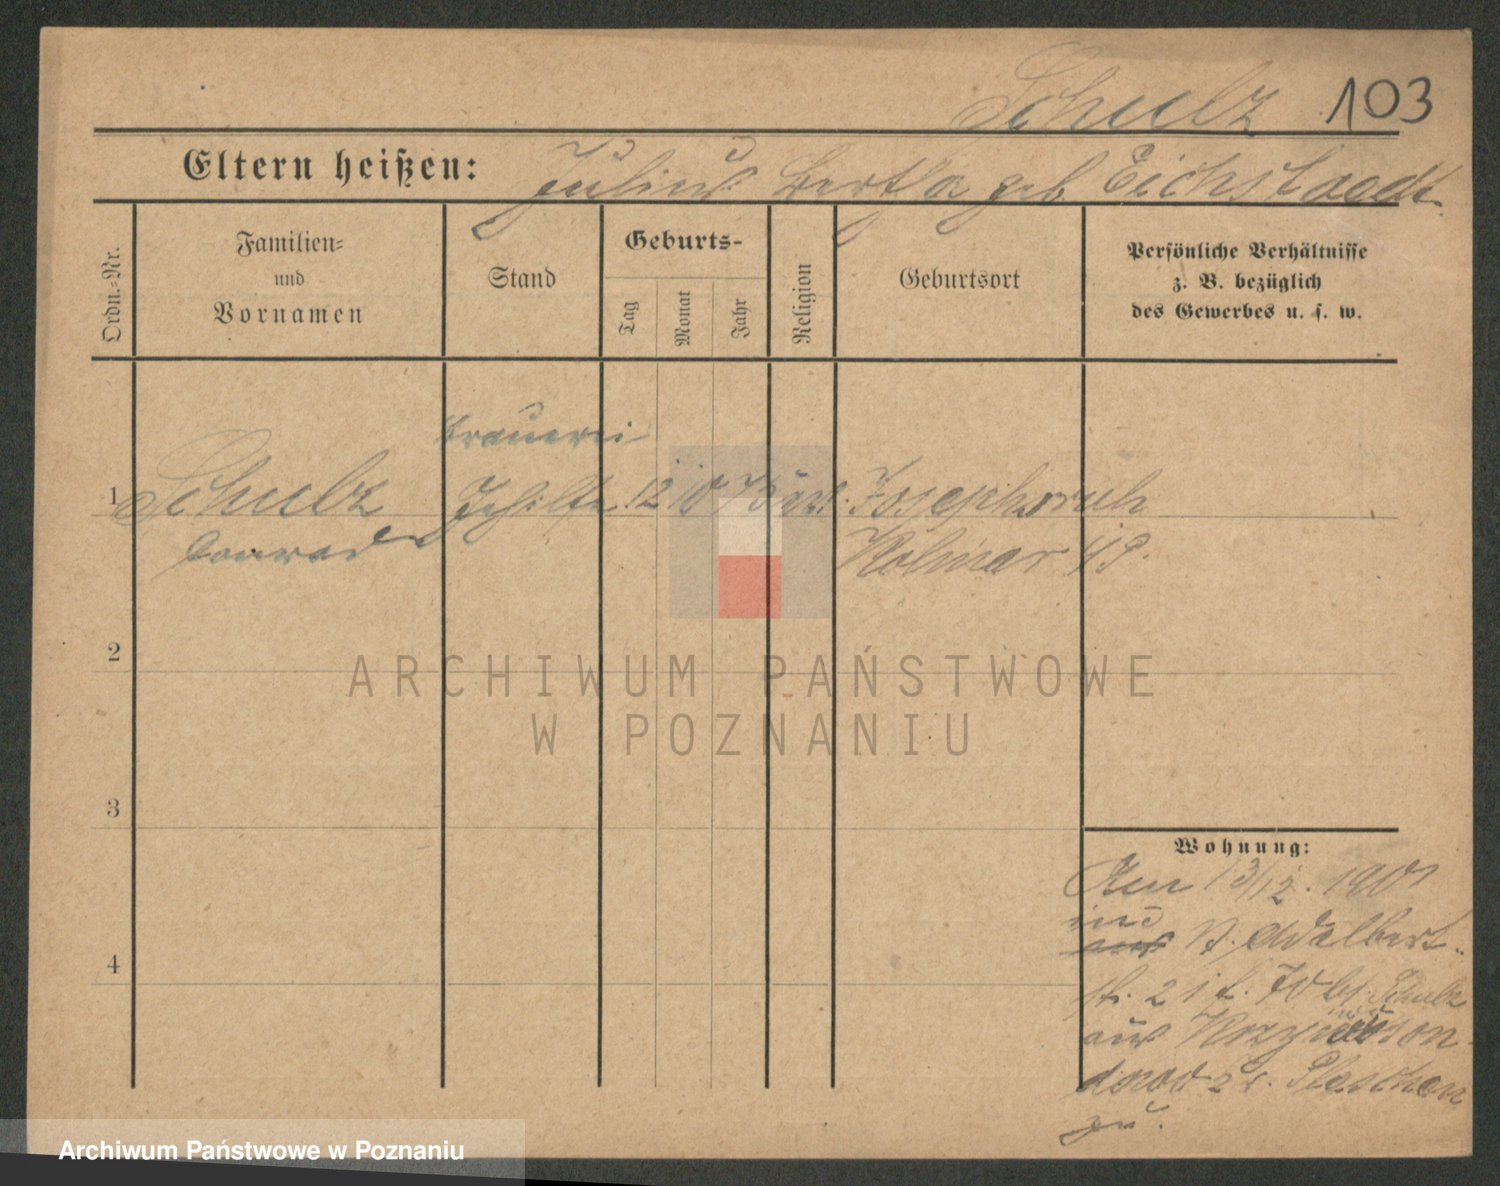 Schulz 103
Eltern heißen: Julius Bertha geb Eichstaedt
Ordn.=Nr.
Familien=
und
Vornamen
Stand
Geburts-
Tag
Monat
Jahr
Religion
Geburtsort
Persönliche Verhältnisse
z. B. bezüglich
des Gewerbes u. s. w.
Brauerei
1 Schulz Gehilfe 12 10 Josephsruh
Conrad Kolmar
2
3
4
Wohnung:
Am 13/12. 1901
ins
aus St. Adalbert
str. 2 Schulz
aus
Pleschen
zu.
ARCHIWUM PAŃSTWOWE
W POZNANIU
Archiwum Państwowe w Poznaniu